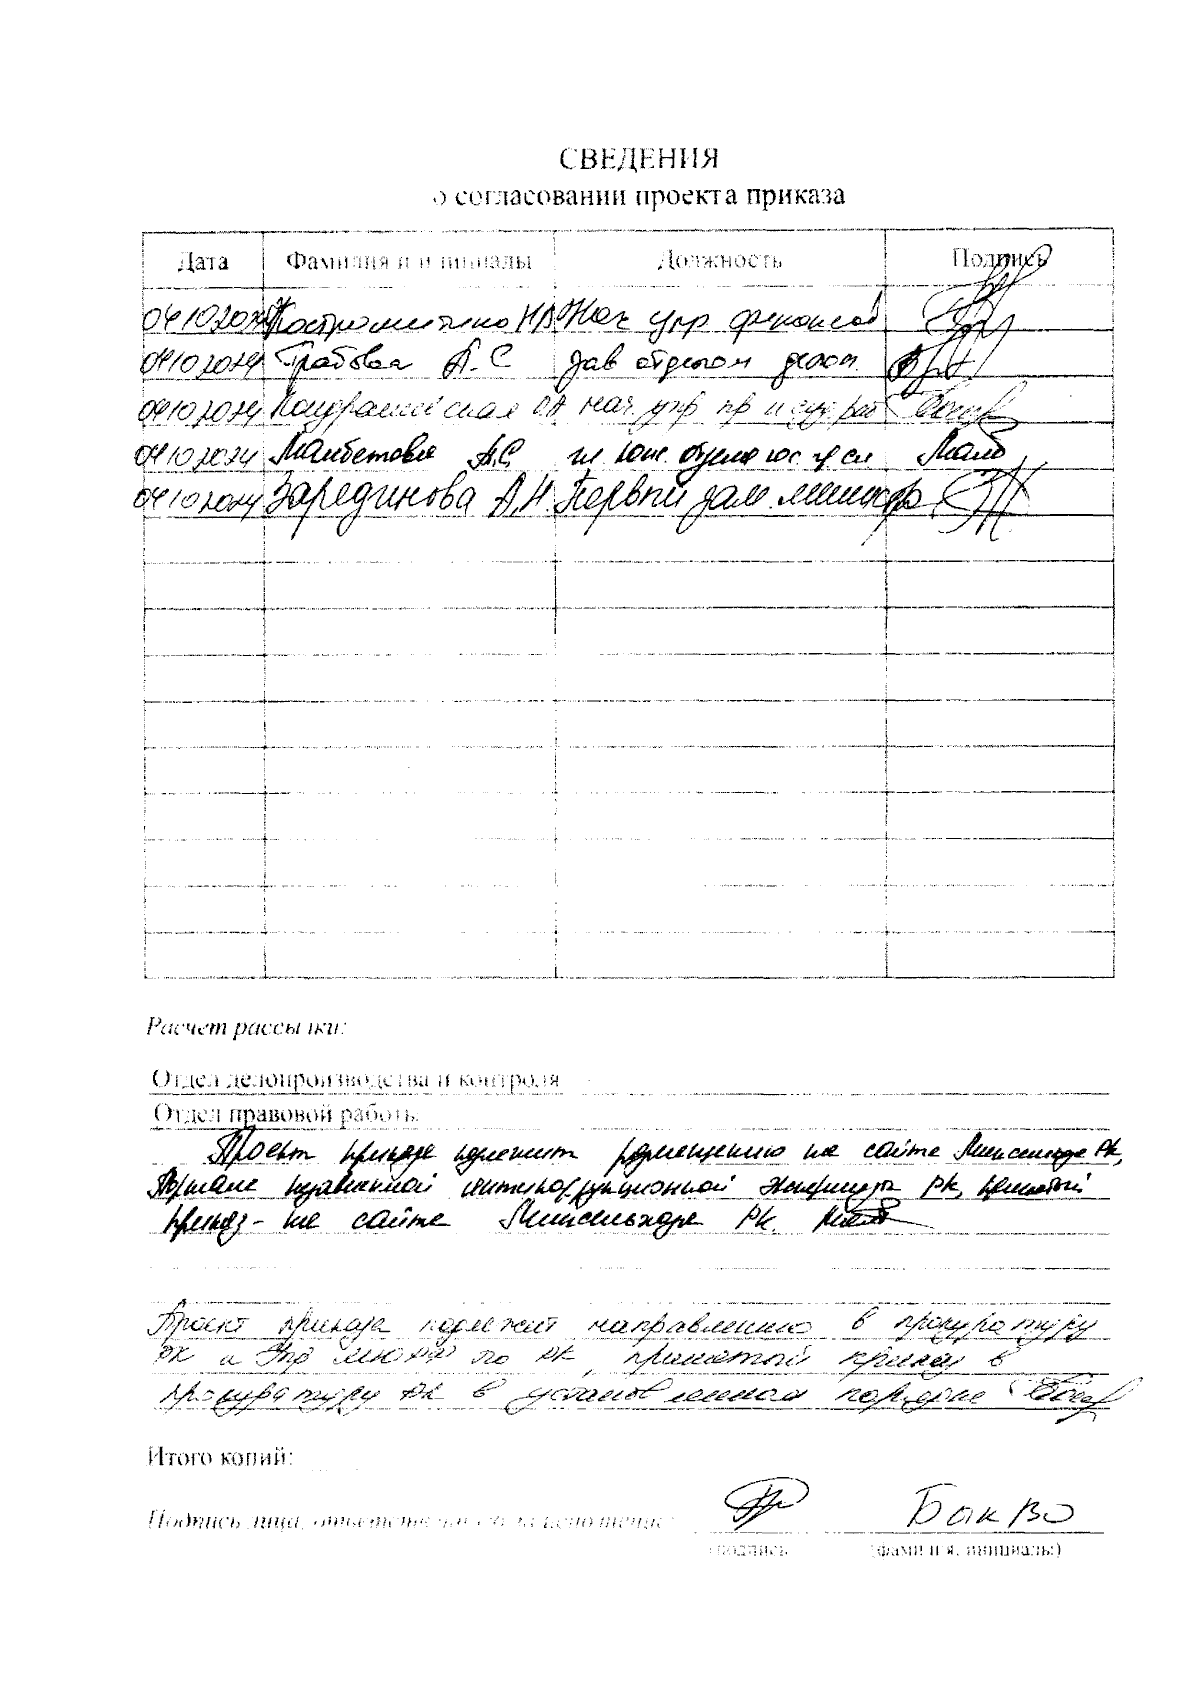 СВЕДЕНИЯ
о согласовании проекта приказа
Дата Фамилия и инициалы Должность Подпись
04.10.2024 Костромитино НВ Нач упр финансов
04.10.2024 Грабовая А.С Зав отделом делоп.
04.10.2024 Кондрашевская нач. упр пр и суд раб
04.10.2024 Мамбетова А.С.
04.10.2024 Зарединова А.Н. Первый зам министр
Расчет рассылки:
Отдел делопроизводства и контроля
Отдел правовой работы
Проект приказа подлежит размещению на сайте Минсельхоза РК,
Портале независимой антикоррупционной экспертизы РК, принятый
приказ - на сайте Минсельхоза РК.
Проект приказа подлежит направлению в прокуратуру
РК и Упр МЮ РФ по РК, принятый приказ в
прокуратуру РК в установленном порядке
Итого копий:
Подпись лица, ответственного за исполнение:
Бак ВО
(подпись (фамилия, инициалы)